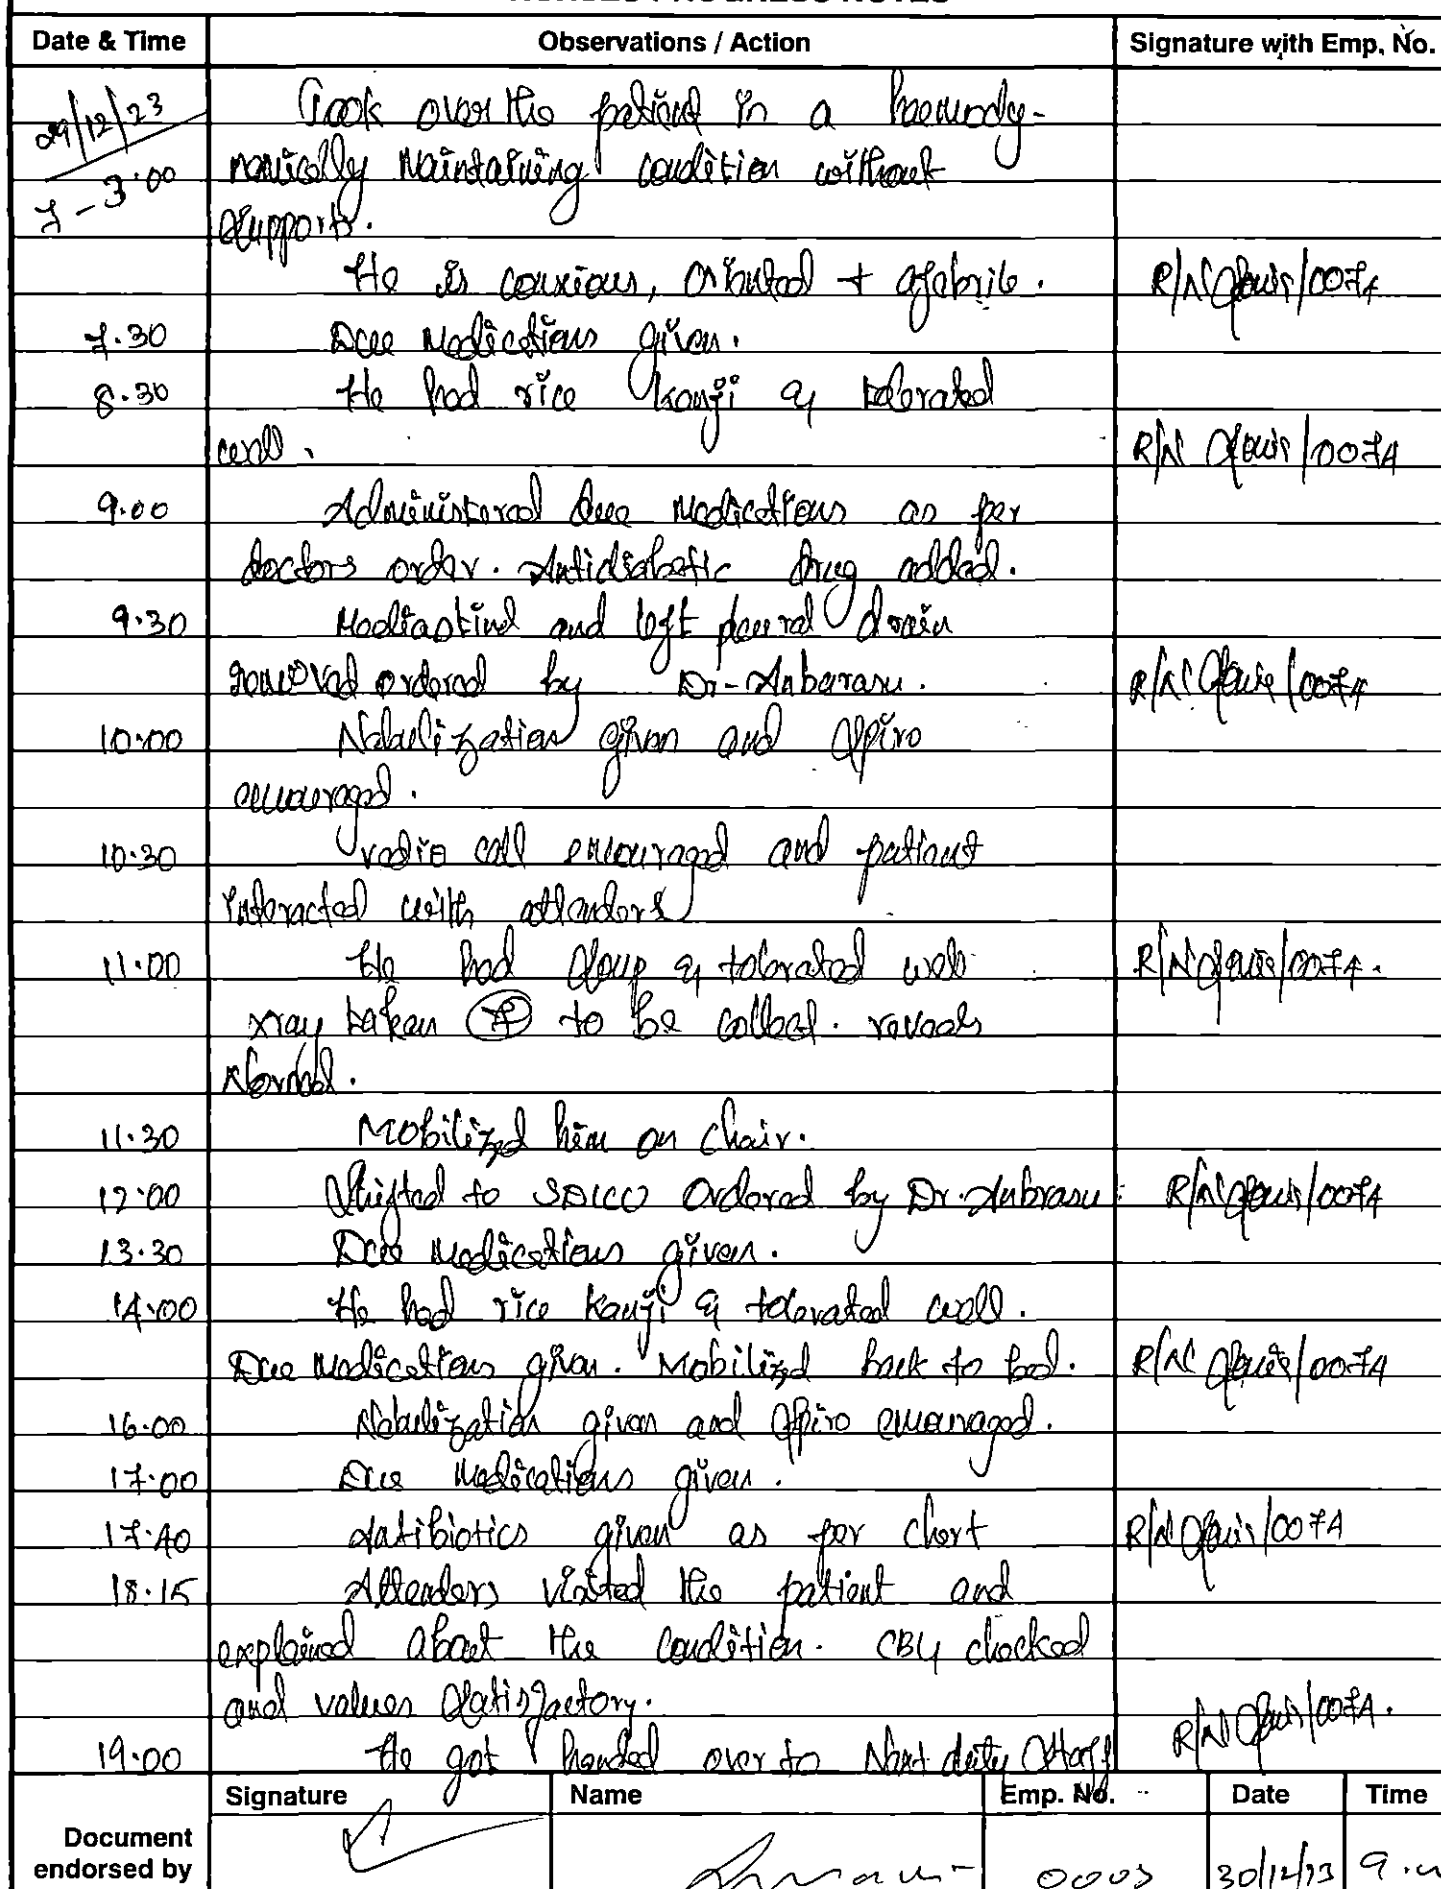 Date & Time Observations / Action Signature with Emp. No.
29/12/23 Took over the patient in a haemody-
7-3.00 namically maintaining condition without
supports.
He is conxious, oriented + afebrile. R/N /0074
7.30 Due medications given.
8.30 He had rice kanji & tolerated
well. R/N /0074
9.00 Administered due medications as per
doctors order. Antidiabetic drug added.
9.30 Mediastinal and left pleural drain
removed ordered by Dr-Anbarasu. R/N /0074
10.00 Nebulization given and spiro
encouraged.
10.30 vedio call encouraged and patient
interacted with attenders
11.00 He had soup & tolerated well R/N /0074.
xray taken to be collect. reveals
Normal.
11.30 Mobilized him on chair.
12.00 Shifted to SDICU ordered by Dr. Anbrasu R/N /0074
13.30 Due medications given.
14.00 He had rice kanji & tolerated well.
Due medications given. Mobilized back to bed. R/N /0074
16.00 Nebulization given and spiro encouraged.
17.00 Due medications given.
17.40 Antibiotics given as per chart R/N /0074
18.15 Attenders visited the patient and
explained about the condition. CBG checked
and values satisfactory.
19.00 He got handed over to Next duty staff R/N /0074.
Signature Name Emp. No. Date Time
Document
endorsed by 30/12/23